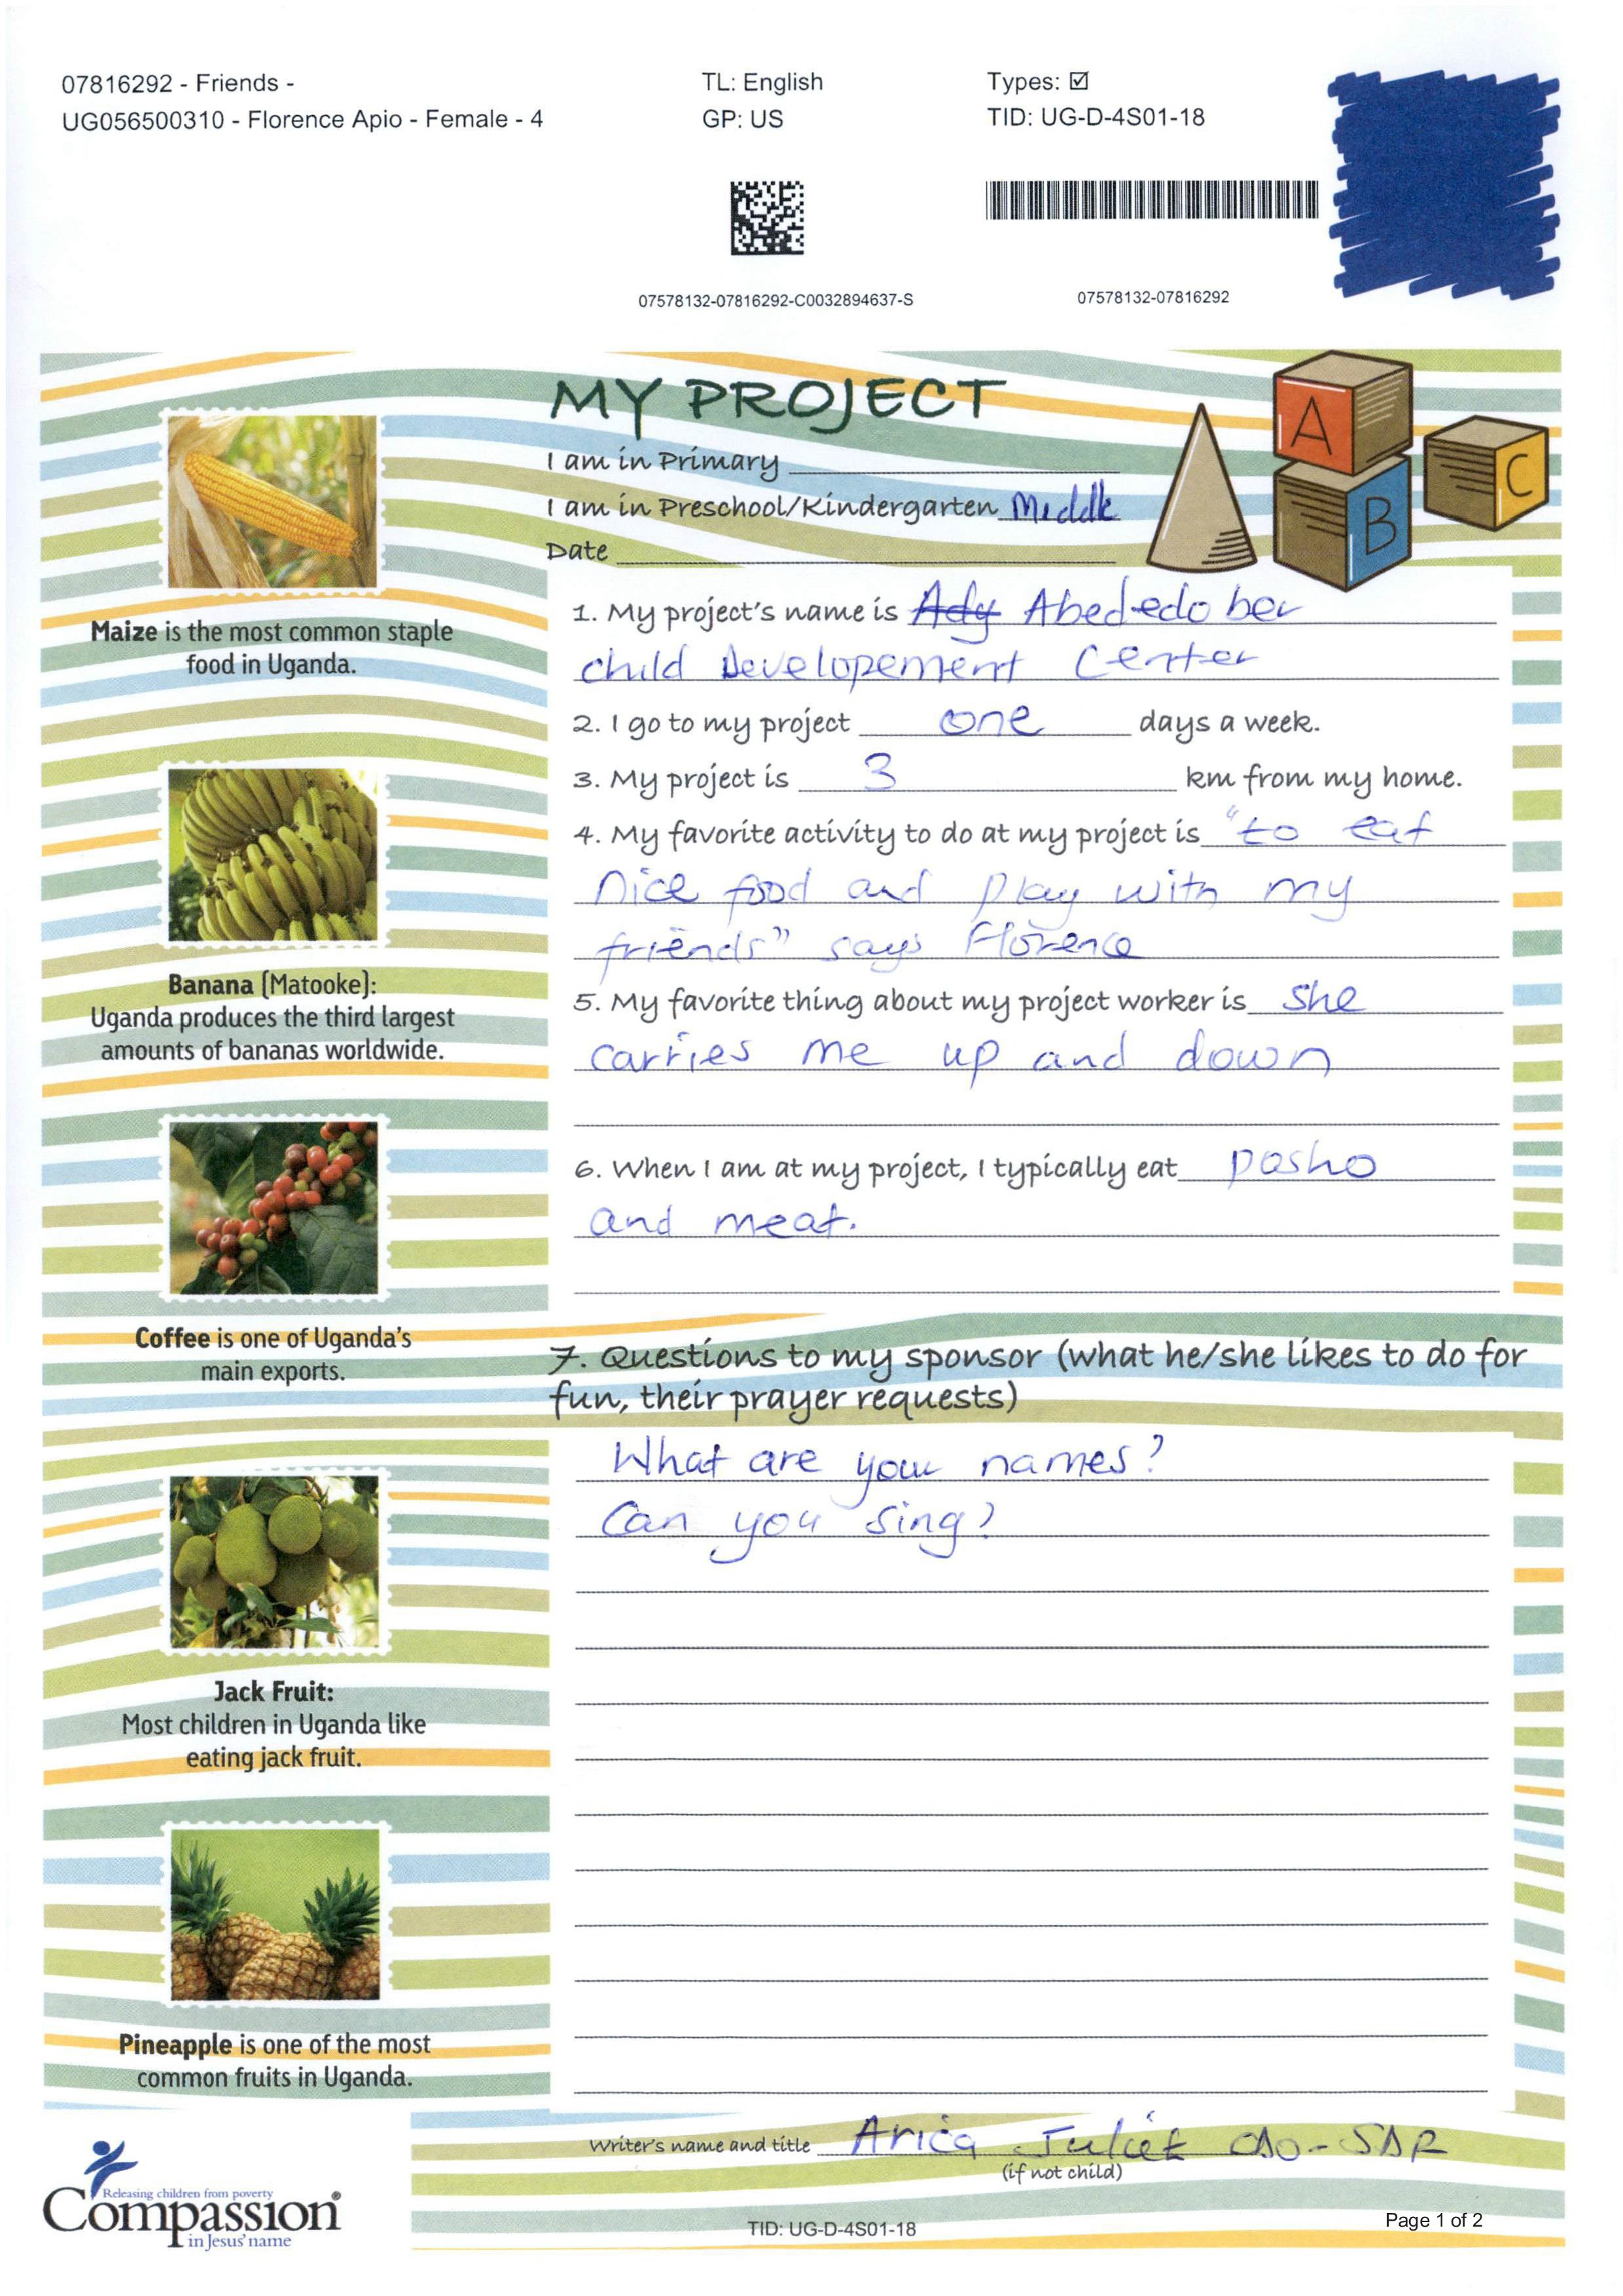 07816292 - Friends -
UG056500310 - Florence Apio - Female - 4
TL: English
GP: US
Types: ☑
TID: UG-D-4S01-18
07578132-07816292-C0032894637-S
07578132-07816292
MY PROJECT
I am in Primary
I am in Preschool/Kindergarten Middle
Date
A
B
C
1. My project's name is Ady Abededo ber
child Developement Center
2. I go to my project one days a week.
3. My project is 3 km from my home.
4. My favorite activity to do at my project is "to eat
nice food and play with my
friends" says Florence
5. My favorite thing about my project worker is she
carries me up and down
6. When I am at my project, I typically eat posho
and meat.
7. Questions to my sponsor (what he/she likes to do for
fun, their prayer requests)
What are your names?
Can you sing?
Maize is the most common staple
food in Uganda.
Banana (Matooke):
Uganda produces the third largest
amounts of bananas worldwide.
Coffee is one of Uganda's
main exports.
Jack Fruit:
Most children in Uganda like
eating jack fruit.
Pineapple is one of the most
common fruits in Uganda.
Writer's name and title Juliet SDR
(if not child)
Releasing children from poverty
Compassion®
in Jesus' name
TID: UG-D-4S01-18
Page 1 of 2